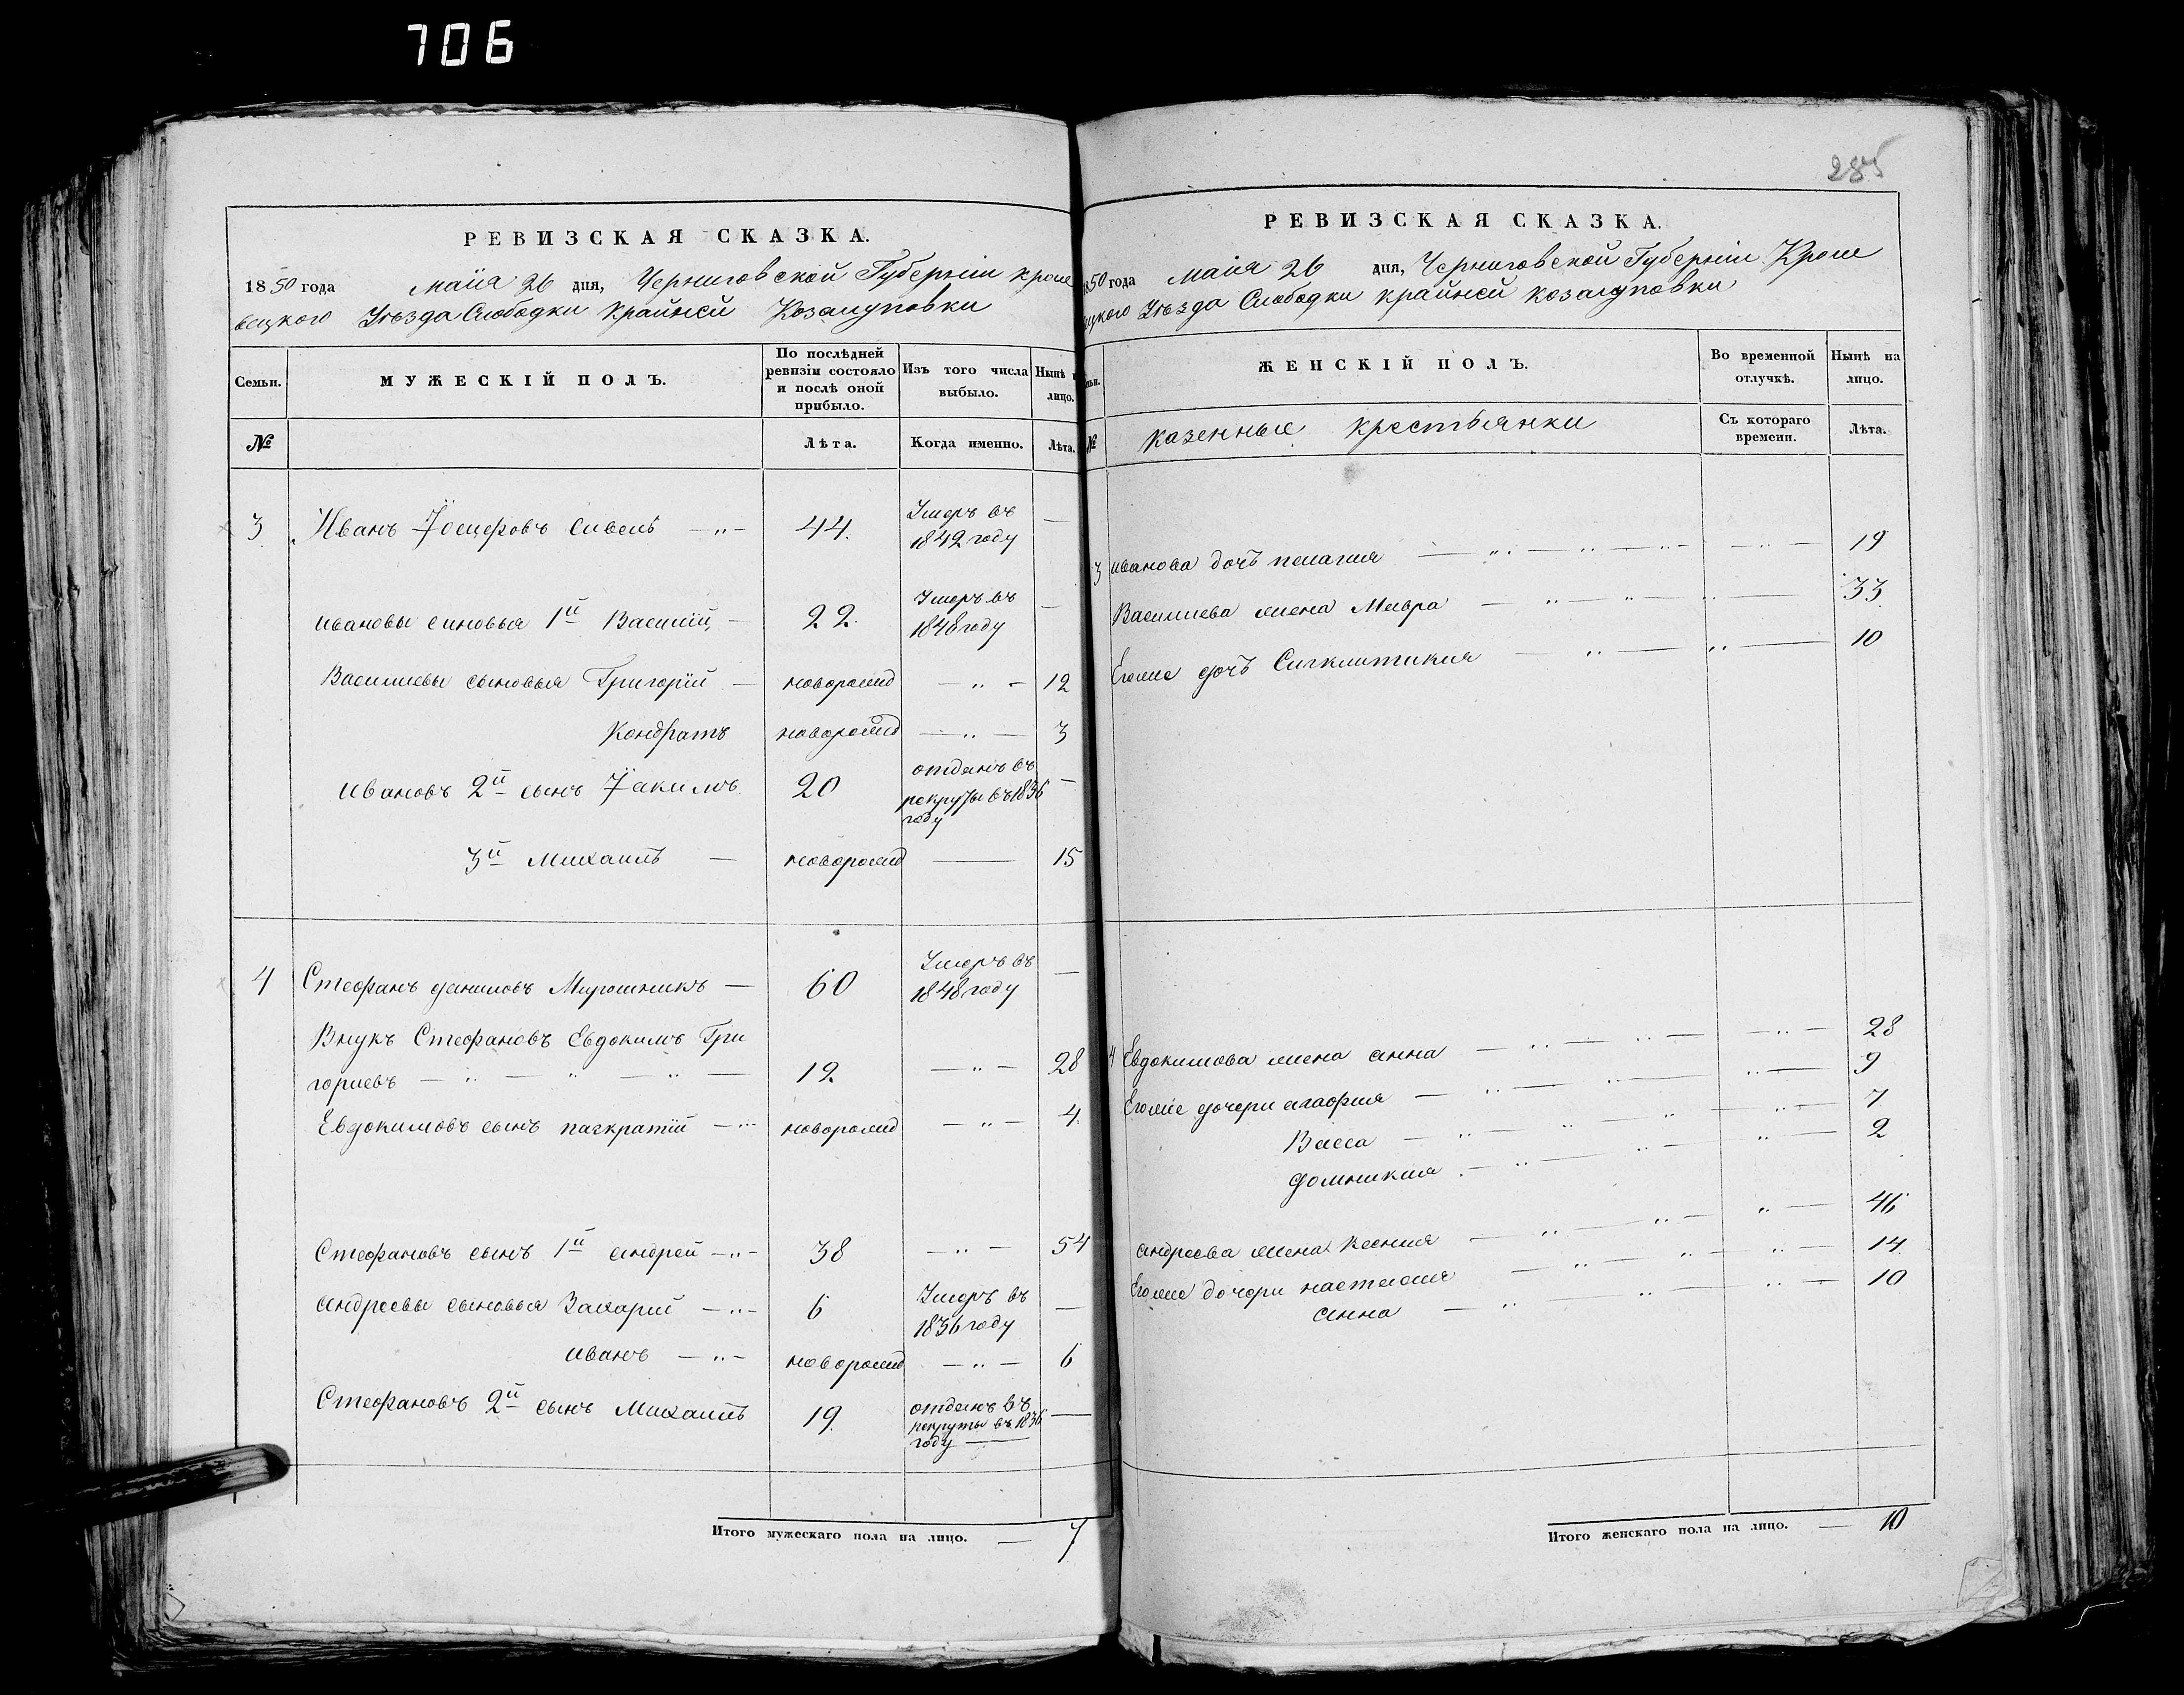 706
РЕВИЗСКАЯ СКАЗКА.
1850 года маія 26 дня, Черниговской Губерніи Кроле
вецкого Уѣзда Слободки крайней Козацуповки
Семьи. МУЖЕСКІЙ ПОЛЪ. По послѣдней ревизіи состояло и послѣ оной прибыло. Изъ того числа выбыло. Нынѣ на лицо.
№ Лѣта. Когда именно. Лѣта.
3 Иванъ Іосифовъ Сивель — 44. Умеръ въ 1842 году —
Ивановы сыновья 1й Василій, — 22. Умеръ въ 1848 году —
Василиевы сыновья Григорій — новорожд — 12
Кондратъ новорожд — 3
Ивановъ 2й сынъ Іакимъ 20 отданъ въ рекруты въ 1836 году —
3й Михаилъ — новорожд — 15
4 Стефанъ Даниловъ Мирошникъ — 60 Умеръ въ 1848 году —
Внукъ Стефановъ Евдокимъ Гри
гориевъ — 12 — 28
Евдокимовъ сынъ Панкратій — новорожд — 4
Стефановъ сынъ 1й Андрей — 38 — 54
Андреевы сыновья Захарий — 6 Умеръ въ 1836 году —
Иванъ — новорожд — 6
Стефановъ 2й сынъ Михаилъ 19. отданъ въ рекруты въ 1836 году —
Итого мужескаго пола на лицо. — 7
285
РЕВИЗСКАЯ СКАЗКА.
1850 года маія 26 дня, Черниговской Губерніи Кроле
вецкого Уѣзда Слободки крайней козацуповки
Семьи. ЖЕНСКІЙ ПОЛЪ. Во временной отлучкѣ. Нынѣ на лицо.
№ казенные крестьянки Съ котораго времени. Лѣта.
3 Иванова дочь Пелагия — 19
Василиева жена Мавра — 33
Егоже дочь Синклитикия — 10
4 Евдокимова жена Анна — 28
Егоже дочери Агафия — 9
Васса — 7
Домникия — 2
Андреева жена Ксения — 46
Егоже дочери Настасия — 14
Анна — 10
Итого женскаго пола на лицо. — 10